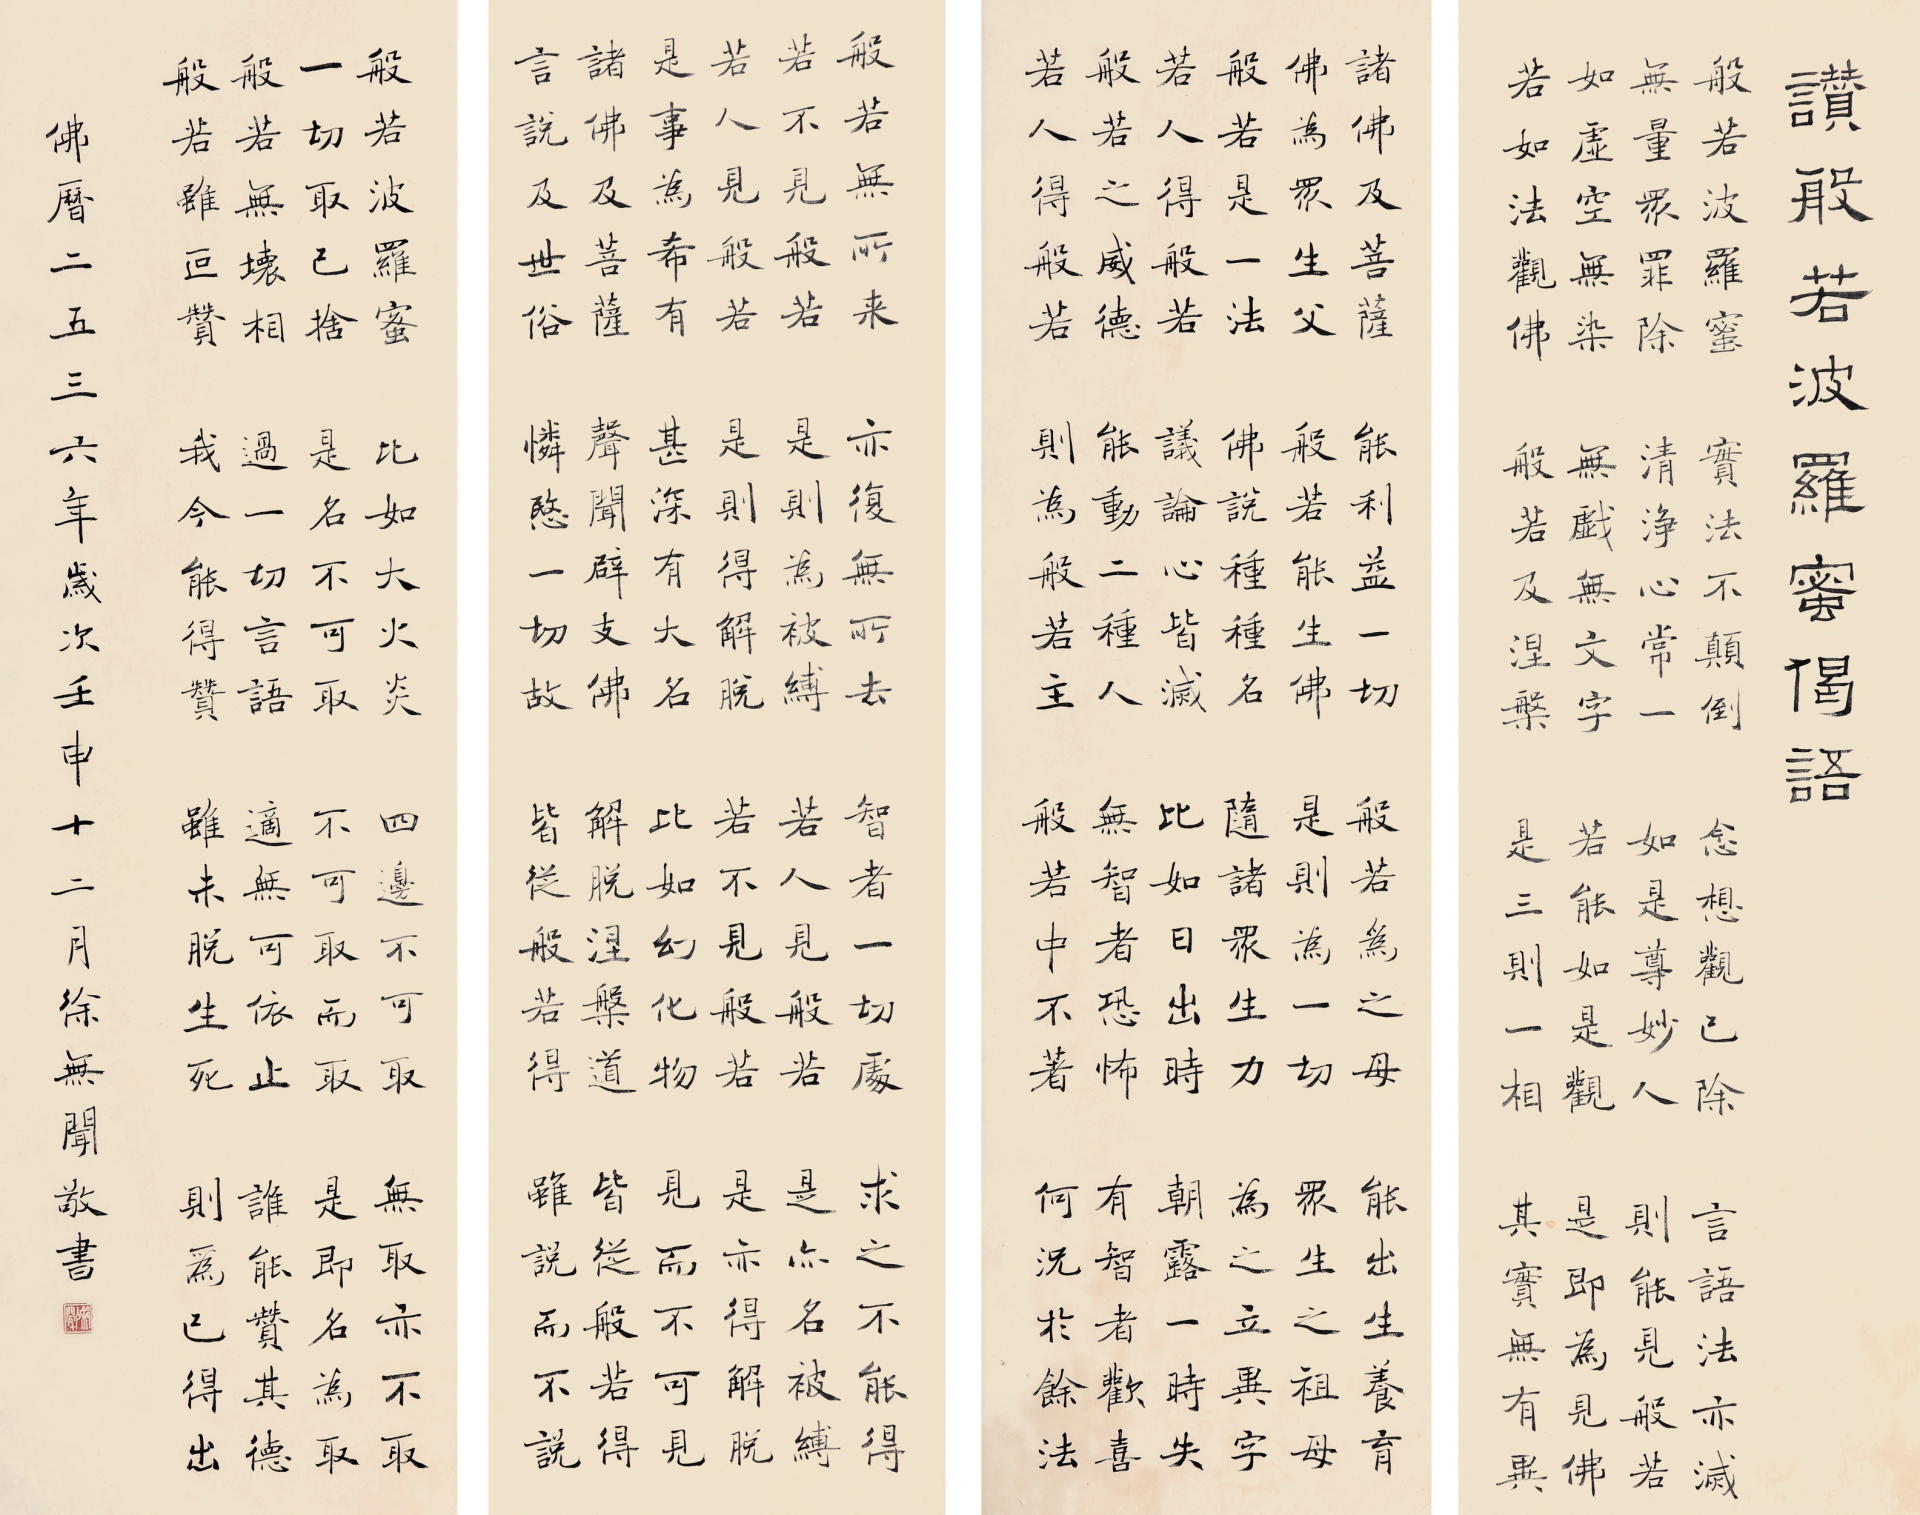 讃般若波羅蜜偈語
般若波羅蜜 實法不顛倒 念想觀已除 言語法亦滅
無量眾罪除 清浄心常一 如是尊妙人 則能見般若
如虛空無染 無戯無文字 若能如是觀 是即為見佛
若如法觀佛 般若及涅槃 是三則一相 其實無有異
諸佛及菩薩 能利益一切 般若為之母 能出生養育
佛為眾生父 般若能生佛 是則為一切 眾生之祖母
般若是一法 佛說種種名 隨諸眾生力 為之立異字
若人得般若 議論心皆滅 比如日出時 朝露一時失
般若之威德 能動二種人 無智者恐怖 有智者歡喜
若人得般若 則為般若主 般若中不著 何況於餘法
般若無所来 亦復無所去 智者一切處 求之不能得
若不見般若 是則為被縛 若人見般若 是亦名被縛
若人見般若 是則得解脫 若不見般若 是亦得解脫
是事為希有 甚深有大名 比如幻化物 見而不可見
諸佛及菩薩 聲聞辟支佛 解脫涅槃道 皆從般若得
言說及世俗 憐愍一切故 皆從般若得 雖説而不説
般若波羅蜜 比如大火炎 四邊不可取 無取亦不取
一切取已捨 是名不可取 不可取而取 是即名為取
般若無壞相 過一切言語 適無可依止 誰能贊其德
般若雖叵贊 我今能得贊 雖未脫生死 則為已得出
佛曆二五三六年歲次壬申十二月徐無聞敬書